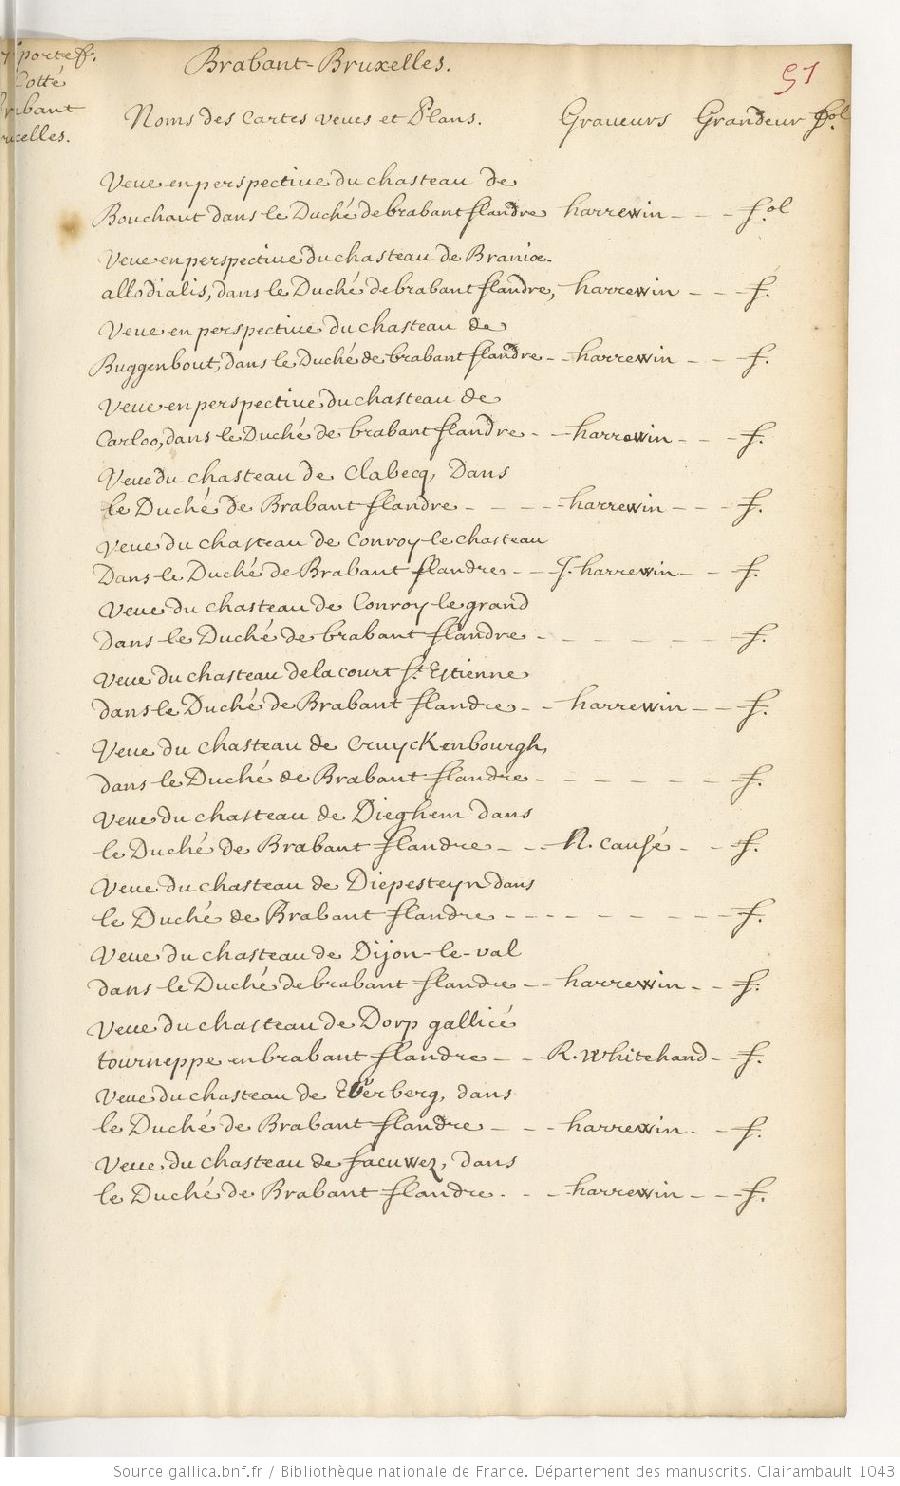 portef.
Cotté
Brabant-Bruxelles.
51
Noms des Cartes veues et Plans. Graueurs Grandeur fol.
Veue en perspectiue du chasteau de
Bouchaut dans le Duché de brabant flandre harrewin - - - fol
Veue en perspectiue du chasteau de Branioe
allodialis, dans le Duché de brabant flandre, harrewin - - - f.
Veue en perspectiue du chasteau de
Buggenbout, dans le Duché de brabant flandre - - harrewin - - - f.
Veue en perspectiue du chasteau de
Carloo, dans le Duché de brabant flandre - - harrewin - - - f.
Veue du chasteau de Clabecq, Dans
le Duché de Brabant flandre - - - - harrewin - - - f.
Veue du chasteau de Conroy le chasteau
Dans le Duché de Brabant flandre - - J. harrewin - - f.
Veue du chasteau de Conroy le grand
dans le Duché de brabant flandre - - - - - - f.
Veue du chasteau de la court St. Estienne
dans le Duché de Brabant flandre - - harrewin - - f.
Veue du chasteau de Cruyckenbourgh,
dans le Duché de Brabant flandre - - - - - - f.
Veue du chasteau de Dieghem dans
le Duché de Brabant flandre - - N. causé - - f.
Veue du chasteau de Diepesteyn dans
le Duché de Brabant flandre - - - - - - - - f.
Veue du chasteau de Dijon-le-val
dans le Duché de brabant flandre - - harrewin - - f.
Veue du chasteau de Dorp gallicé
tourneppe en brabant flandre - - R. Whitehand - f.
Veue du chasteau de Everberg, dans
le Duché de Brabant flandre - - - harrewin - - f.
Veue du chasteau de facuwez, dans
le Duché de Brabant flandre - - - harrewin - - - f.
Source gallica.bnf.fr / Bibliothèque nationale de France. Département des manuscrits. Clairambault 1043